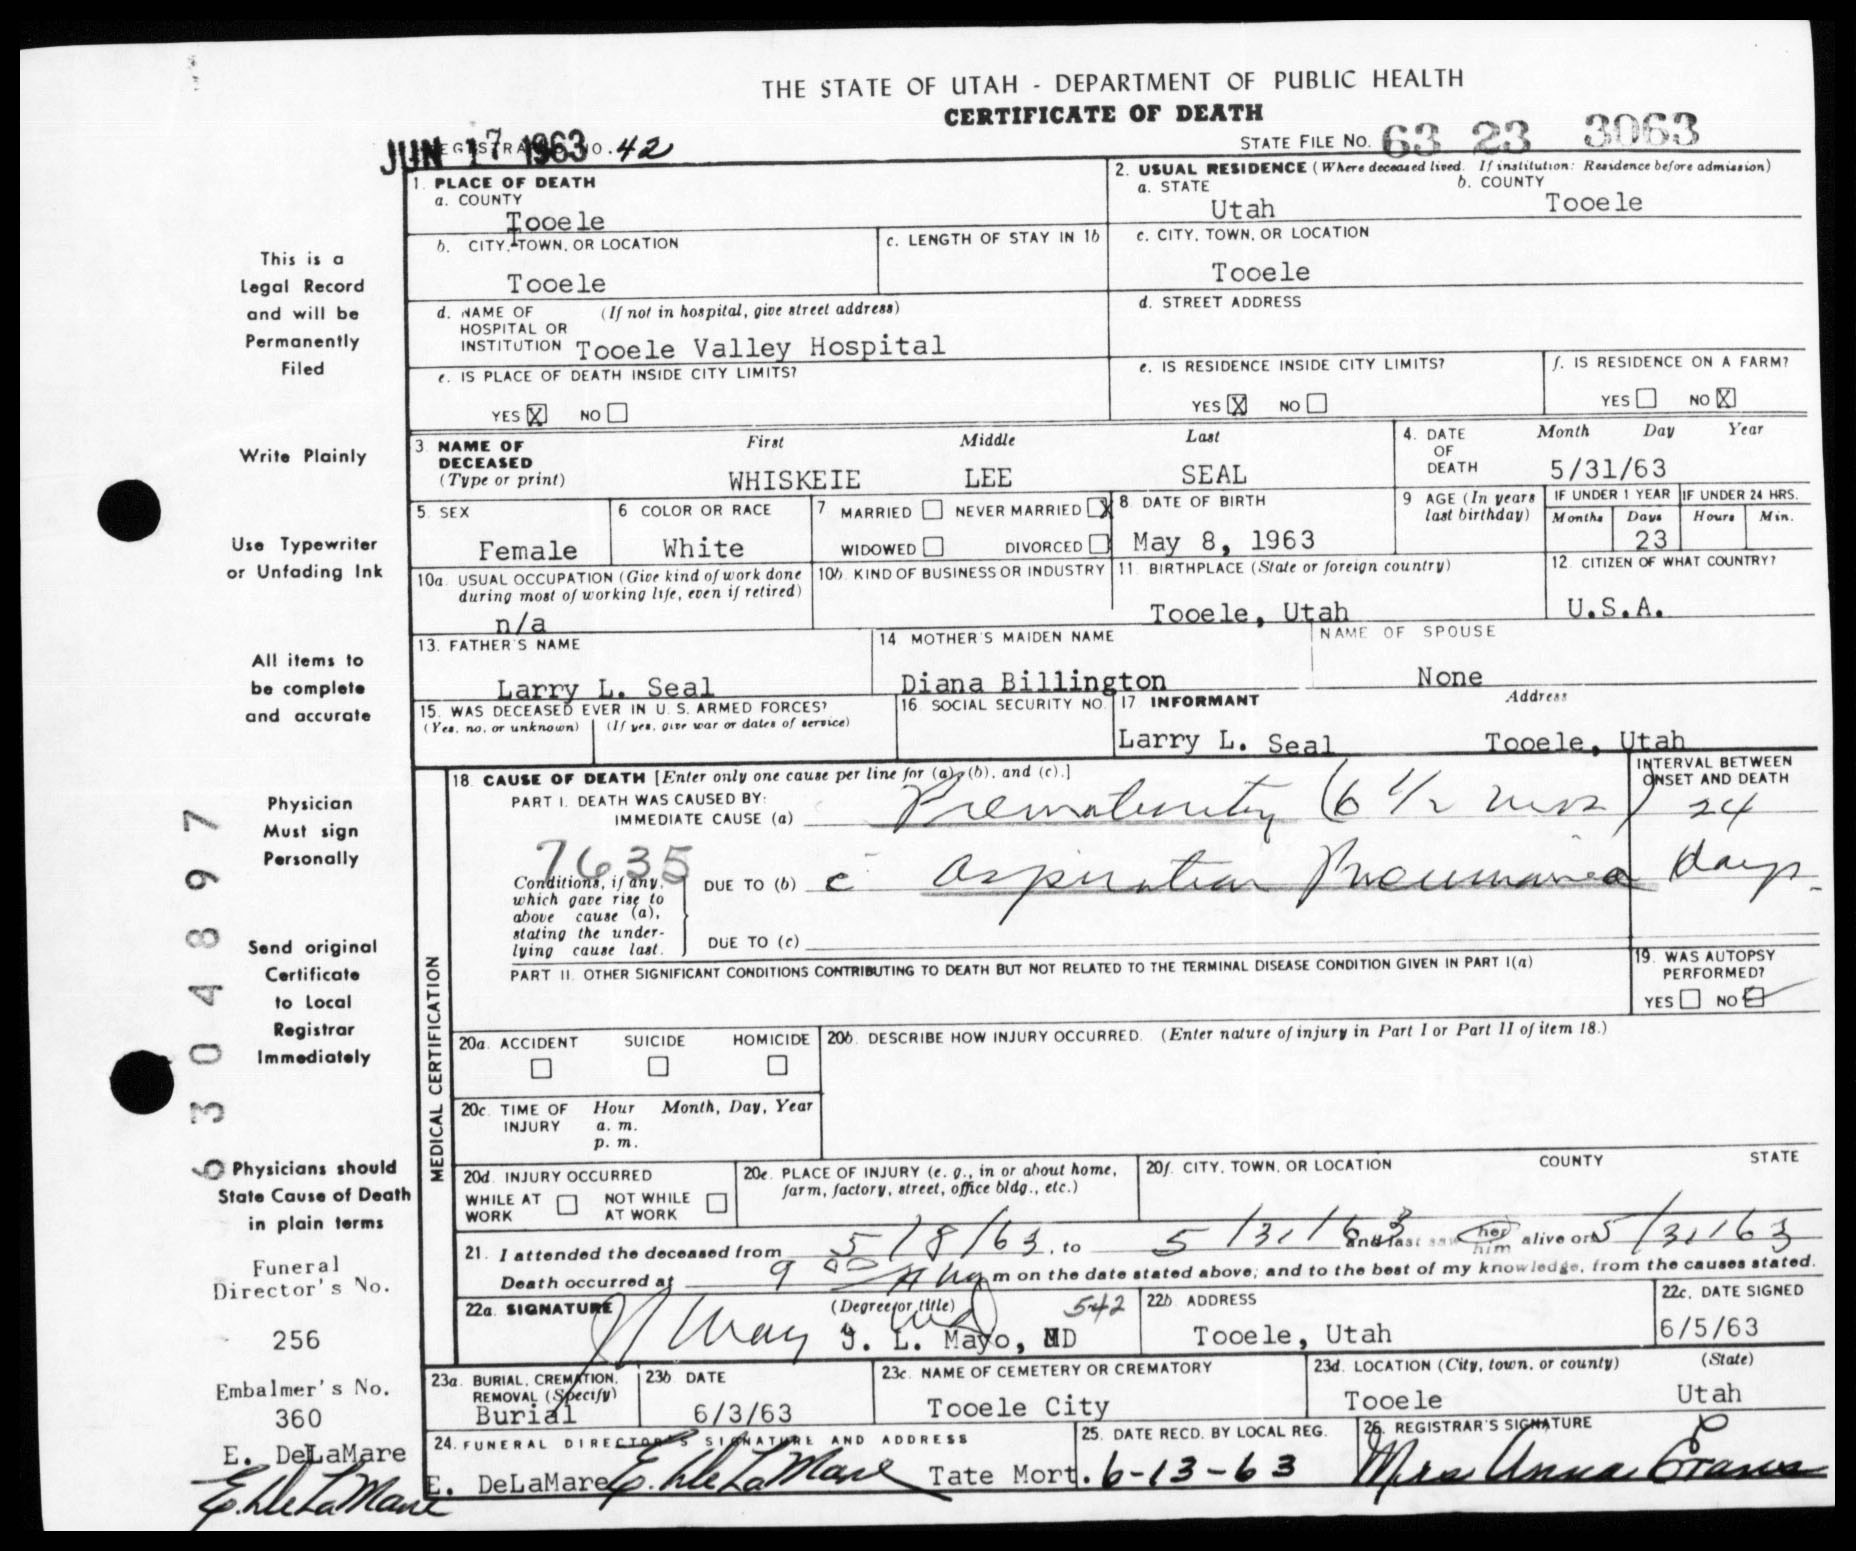 THE STATE OF UTAH - DEPARTMENT OF PUBLIC HEALTH
CERTIFICATE OF DEATH
JUN 17 1963 REGISTRAR'S NO. 42
STATE FILE NO. 63 23 3063
1. PLACE OF DEATH
a. COUNTY
Tooele
2. USUAL RESIDENCE (Where deceased lived. If institution: Residence before admission)
a. STATE
Utah
b. COUNTY
Tooele
b. CITY, TOWN, OR LOCATION
Tooele
c. LENGTH OF STAY IN 1b
c. CITY, TOWN, OR LOCATION
Tooele
d. NAME OF HOSPITAL OR INSTITUTION (If not in hospital, give street address)
Tooele Valley Hospital
d. STREET ADDRESS
e. IS PLACE OF DEATH INSIDE CITY LIMITS?
YES X NO
e. IS RESIDENCE INSIDE CITY LIMITS?
YES X NO
f. IS RESIDENCE ON A FARM?
YES NO X
3 NAME OF DECEASED (Type or print)
First Middle Last
WHISKEIE LEE SEAL
4. DATE OF DEATH
Month Day Year
5/31/63
5. SEX
Female
6 COLOR OR RACE
White
7 MARRIED NEVER MARRIED X
WIDOWED DIVORCED
8 DATE OF BIRTH
May 8, 1963
9 AGE (In years last birthday)
IF UNDER 1 YEAR
Months Days
23
IF UNDER 24 HRS.
Hours Min.
10a. USUAL OCCUPATION (Give kind of work done during most of working life, even if retired)
n/a
10b. KIND OF BUSINESS OR INDUSTRY
11. BIRTHPLACE (State or foreign country)
Tooele, Utah
12. CITIZEN OF WHAT COUNTRY?
U.S.A.
13. FATHER'S NAME
Larry L. Seal
14 MOTHER'S MAIDEN NAME
Diana Billington
NAME OF SPOUSE
None
15. WAS DECEASED EVER IN U. S. ARMED FORCES?
(Yes, no, or unknown) (If yes, give war or dates of service)
16. SOCIAL SECURITY NO.
17 INFORMANT Address
Larry L. Seal Tooele, Utah
MEDICAL CERTIFICATION
18. CAUSE OF DEATH [Enter only one cause per line for (a), (b), and (c).]
INTERVAL BETWEEN ONSET AND DEATH
PART I. DEATH WAS CAUSED BY:
IMMEDIATE CAUSE (a) Prematurity (6 1/2 mos) 24
7635
Conditions, if any, which gave rise to above cause (a), stating the underlying cause last.
DUE TO (b) c Aspiration Pneumonia days
DUE TO (c)
PART II. OTHER SIGNIFICANT CONDITIONS CONTRIBUTING TO DEATH BUT NOT RELATED TO THE TERMINAL DISEASE CONDITION GIVEN IN PART I(a)
19. WAS AUTOPSY PERFORMED?
YES NO
20a. ACCIDENT SUICIDE HOMICIDE
20b. DESCRIBE HOW INJURY OCCURRED. (Enter nature of injury in Part I or Part II of item 18.)
20c. TIME OF INJURY Hour Month, Day, Year
a. m.
p. m.
20d. INJURY OCCURRED
WHILE AT WORK NOT WHILE AT WORK
20e. PLACE OF INJURY (e. g., in or about home, farm, factory, street, office bldg., etc.)
20f. CITY, TOWN, OR LOCATION COUNTY STATE
21. I attended the deceased from 5/8/63, to 5/31/63 and last saw her him alive on 5/31/63
Death occurred at 9 00 A m on the date stated above; and to the best of my knowledge, from the causes stated.
22a. SIGNATURE (Degree or title)
J. L. Mayo, MD
542
22b. ADDRESS
Tooele, Utah
22c. DATE SIGNED
6/5/63
23a. BURIAL, CREMATION, REMOVAL (Specify)
Burial
23b. DATE
6/3/63
23c. NAME OF CEMETERY OR CREMATORY
Tooele City
23d. LOCATION (City, town, or county) (State)
Tooele Utah
24. FUNERAL DIRECTOR'S SIGNATURE AND ADDRESS
E. DeLaMare E. DeLaMare Tate Mort.
25. DATE RECD. BY LOCAL REG.
6-13-63
26. REGISTRAR'S SIGNATURE
Mrs Anna Evans
This is a
Legal Record
and will be
Permanently
Filed
Write Plainly
Use Typewriter
or Unfading Ink
All items to
be complete
and accurate
Physician
Must sign
Personally
Send original
Certificate
to Local
Registrar
Immediately
Physicians should
State Cause of Death
in plain terms
6304897
Funeral
Director's No.
256
Embalmer's No.
360
E. DeLaMare
E. DeLaMare